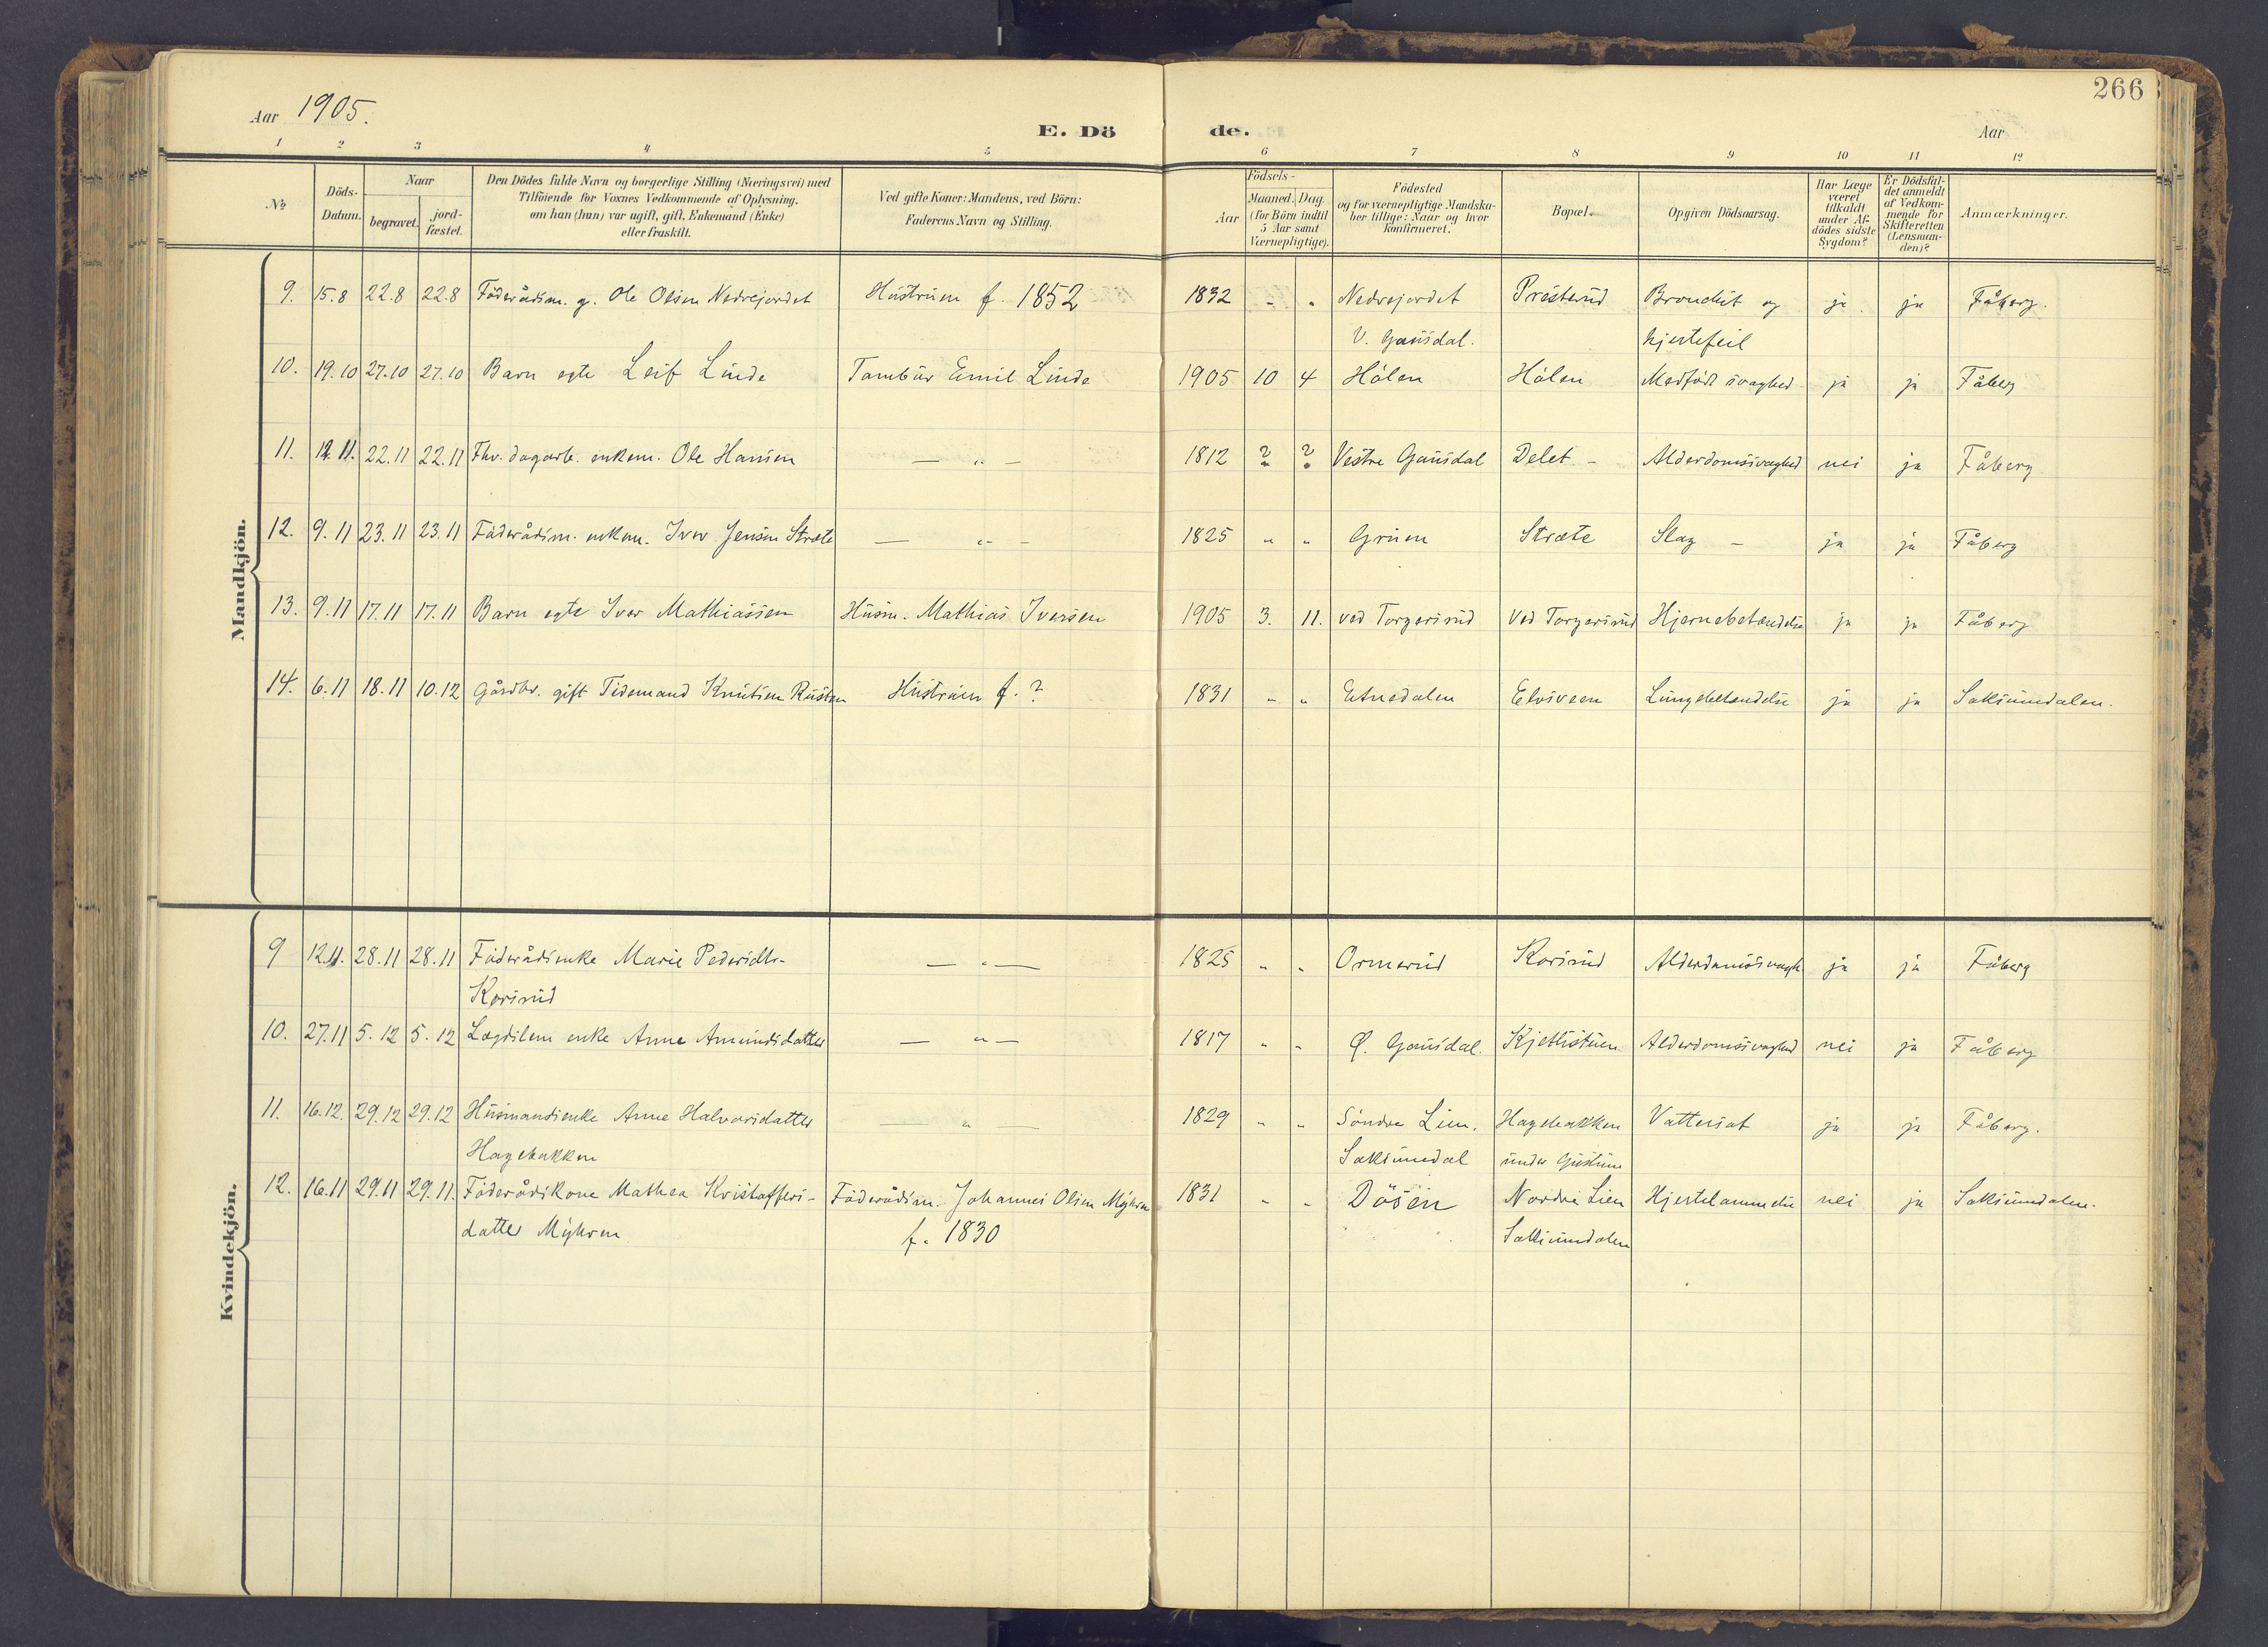 266
Aar 1905.
E. Dö de.
Aar
1 2 3 4 5 6 7 8 9 10 11 12
No
Döds-Datum.
Naar
begravet. jord-fæstet.
Den Dödes fulde Navn og borgerlige Stilling (Næringsvei) med
Tilföiende for Voxnes Vedkommende af Oplysning,
om han (hun) var ugift, gift, Enkemand (Enke)
eller fraskilt.
Ved gifte Koner: Mandens, ved Börn:
Faderens Navn og Stilling.
Födsels-
Aar
Maaned. Dag.
(for Börn indtil
5 Aar samt
Værnepligtige).
Födested
og for værnepligtige Mandska-
ber tillige: Naar og hvor
konfirmeret.
Bopæl.
Opgiven Dödsaarsag.
Har Læge
været
tilkaldt
under Af-
dödes sidste
Sygdom?
Er Dödsfal-
det anmeldt
af Vedkom-
mende for
Skifteretten
(Lensman-
den)?
Anmærkninger.
Mandkjön.
9. 15.8 22.8 22.8 Föderådsm. g. Ole Olsen Nedrejordet Hustruen f. 1852 1832 " " Nedrejordet Presterud Bronchit og ja ja Fåberg.
V. Gausdal. hjertefeil
10. 19.10 27.10 27.10 Barn egte Leif Linde Tambur Emil Linde 1905 10 4 Hölen Hölen Medfödt svaghed ja ja Fåberg
11. 12.11. 22.11 22.11 Fhv. dagarb. enkem. Ole Hansen — " — 1812 ? ? Vestre Gausdal Delet - Alderdomssvaghed nei ja Fåberg
12. 9.11 23.11 23.11 Föderådsm. enkem. Iver Jensen Stræte — " — 1825 " " Gruen Stræte Slag — ja ja Fåberg
13. 9.11 17.11 17.11 Barn egte Iver Mathiassen Husm. Mathias Iversen 1905 3. 11. ved Torgersrud Ved Torgersrud Hjernebetændelse ja ja Fåberg
14. 6.11 18.11 10.12 Gårdbr. gift Tidemand Knutsen Rusten Hustruen f. ? 1831 " " Etnedalen Elvsveen Lungebetændelse ja ja Saksumdalen.
Kvindekjön.
9 12.11. 28.11 28.11 Föderådsenke Marie Pedersdtr. — " — 1825 " " Ormerud Korsrud Alderdomssvagh. ja ja Fåberg
Korsrud
10. 27.11 5.12 5.12 Lægdslem enke Anne Amundsdatter — " — 1817 " " Ø. Gausdal. Kjetlistuen Alderdomssvaghed nei ja Fåberg
11. 16.12. 29.12 29.12 Husmandsenke Anne Halvorsdatter — " — 1829 " " Söndre Lien, Hagebakken Vattersot ja ja Fåberg.
Hagebakken Saksumdal under
12. 16.11 29.11 29.11. Föderådskone Mathea Kristoffers- Föderådsm. Johannes Olsen Myhren 1831 " " Dösen Nordre Lien Hjertelammelse nei ja Saksumdalen.
datter Myhren f. 1830 Saksumdalen